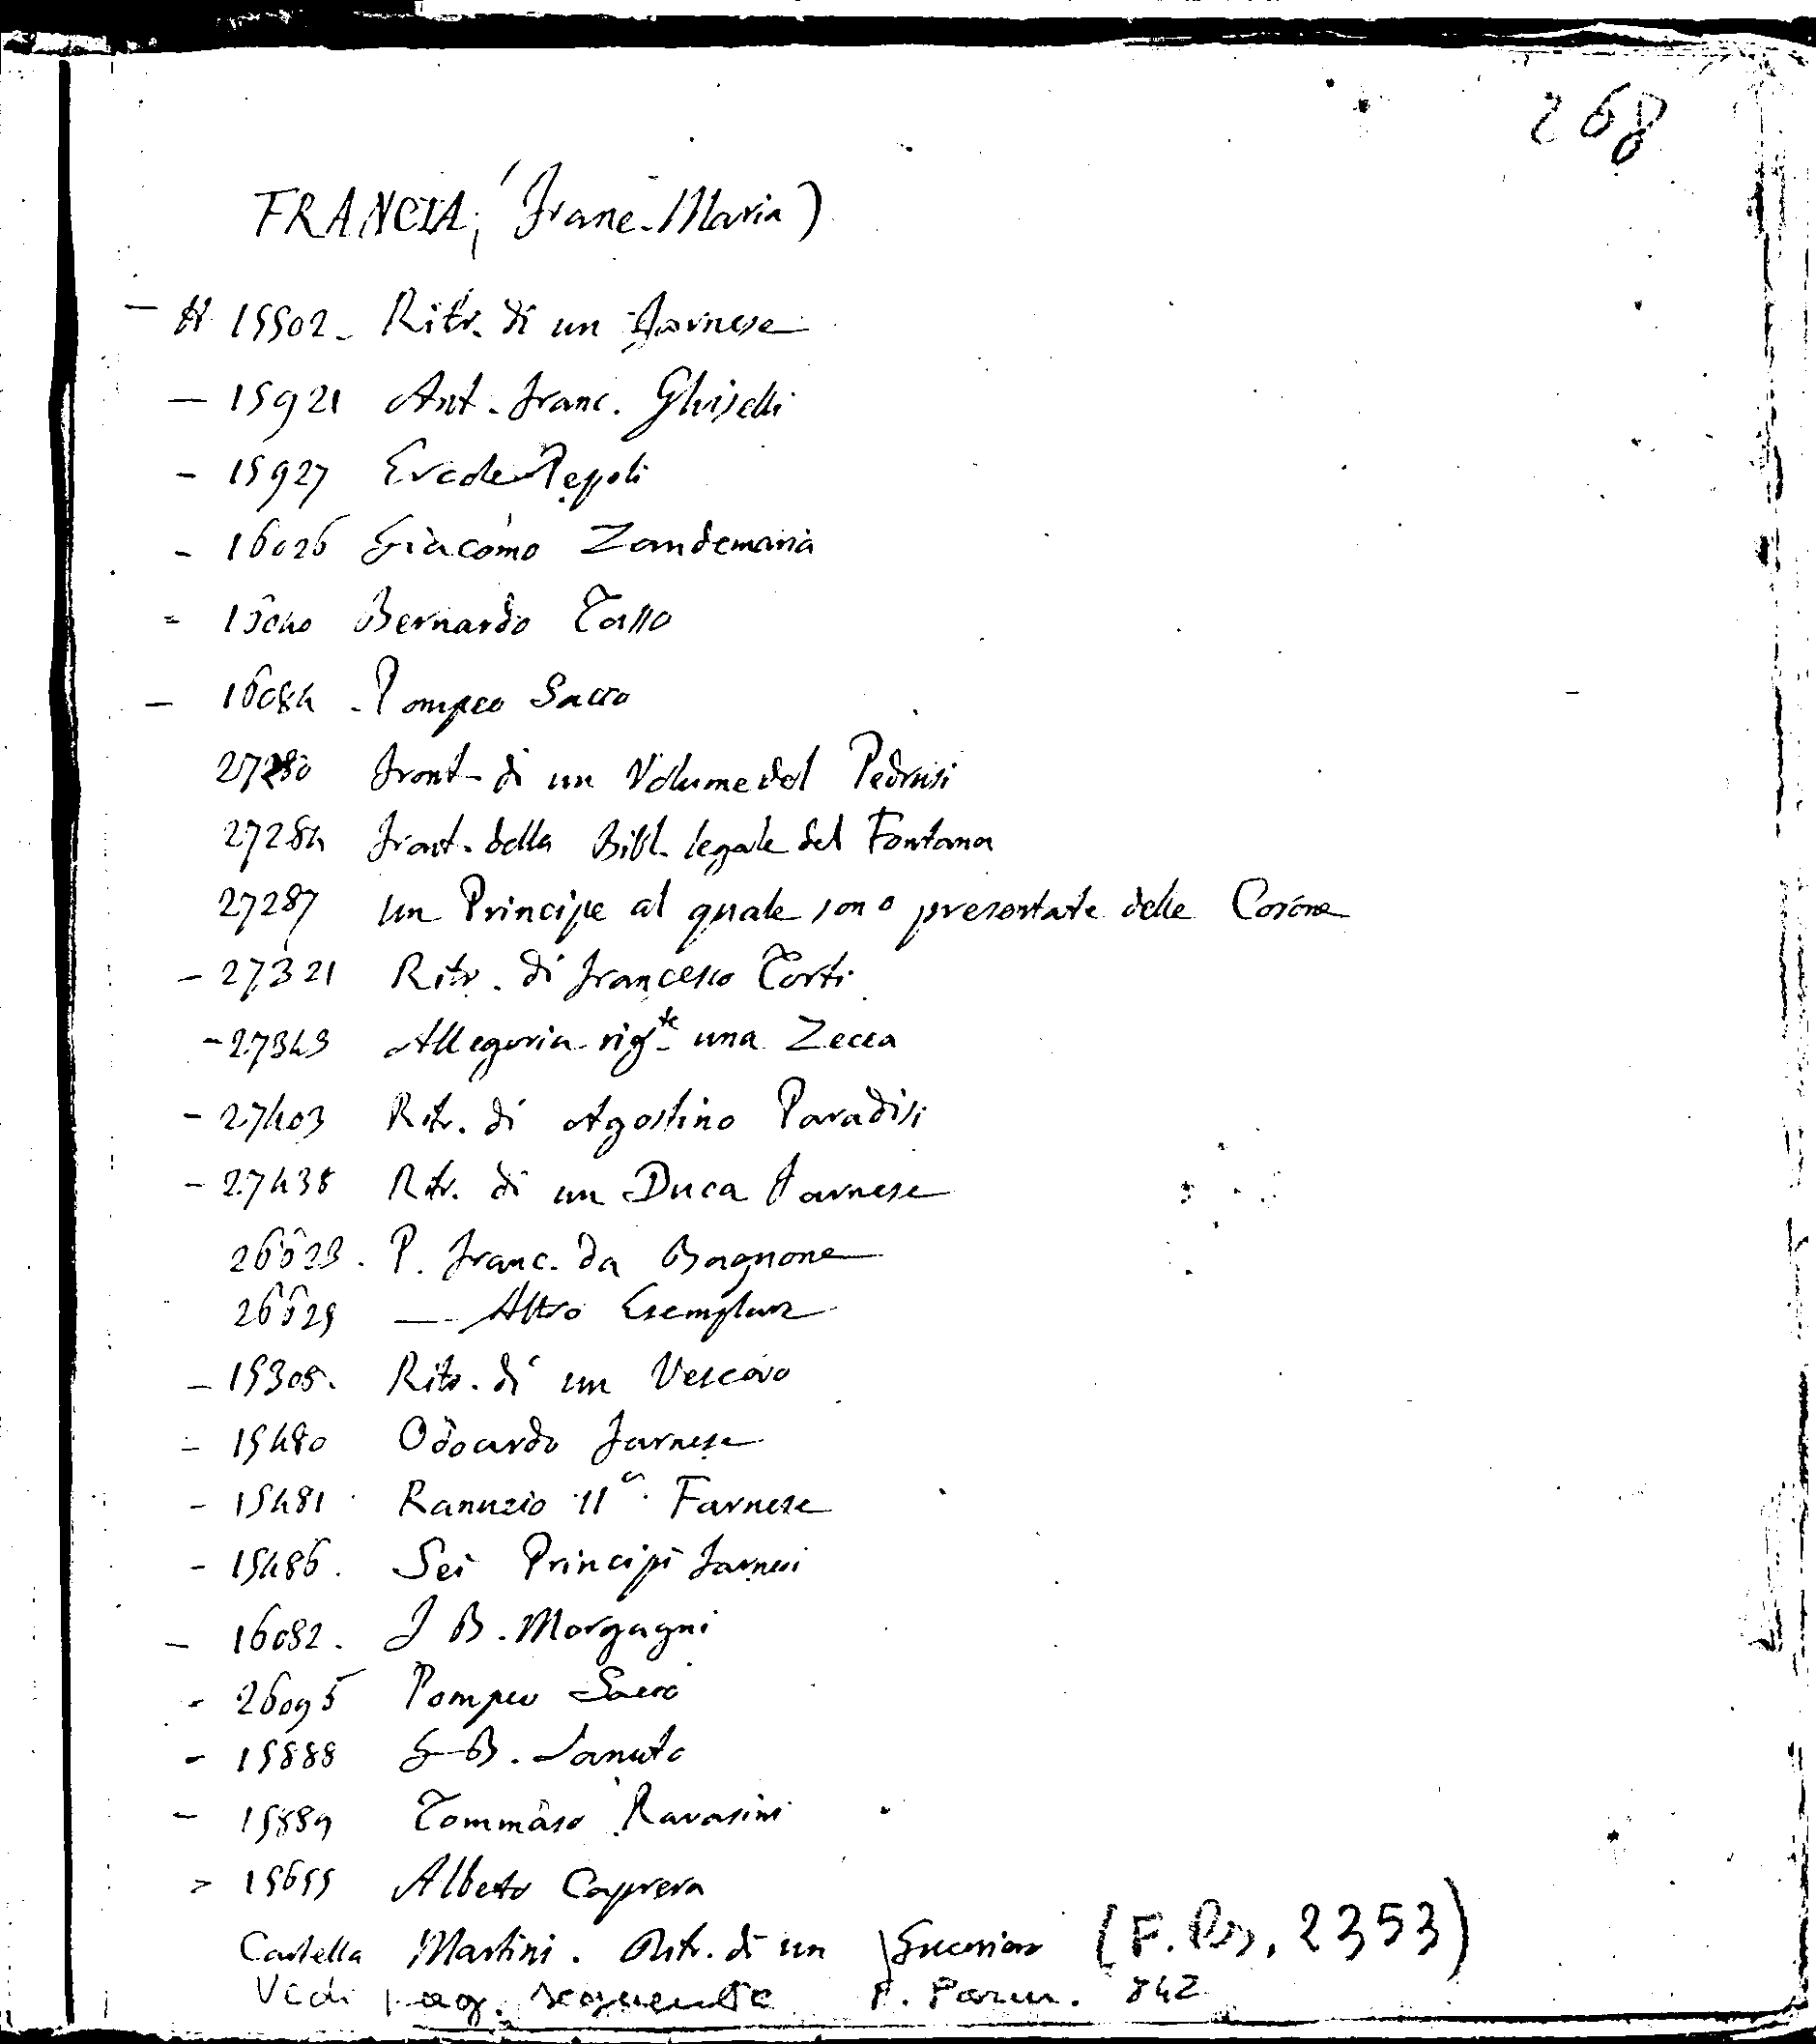 268
FRANCIA, (Franc. Maria)
— # 15502 - Ritr. di un Farnese
— 15921 Ant. Franc. Ghiselli
- 15927 Ercole Pepoli
- 16026 Giacomo Zandemaria
= Bernardo Tasso
— 16084 - Pompeo Sacco
27280 Front. di un Volume del Pedrusi
27284 Front. della Bibl. legale del Fontana
27287 un Principe al quale sono presentate delle Corone
- 27321 Ritr. di Francesco Torti
- 27343 Allegoria rig.te una Zecca
- 27403 Ritr. di Agostino Paradisi
- 27438 Ritr. di un Duca Farnese
P. Franc. da Bagnone
— Altro Esemplare
- 15305. Ritr. di un Vescovo
- 15480 Odoardo Farnese
- 15481 Ranuzio II° Farnese
- 15486. Sei Principi Farnesi
- 16082. J B. Morgagni
- 26095 Pompeo Sacco
- 15888 G B. Sanuto
- 15889 Tommaso Ravasini
- 15655 Alberto Caprera
Cartella Martini. Ritr. di un (F. 2353)
Vedi pag. seguente P. Parm. 842